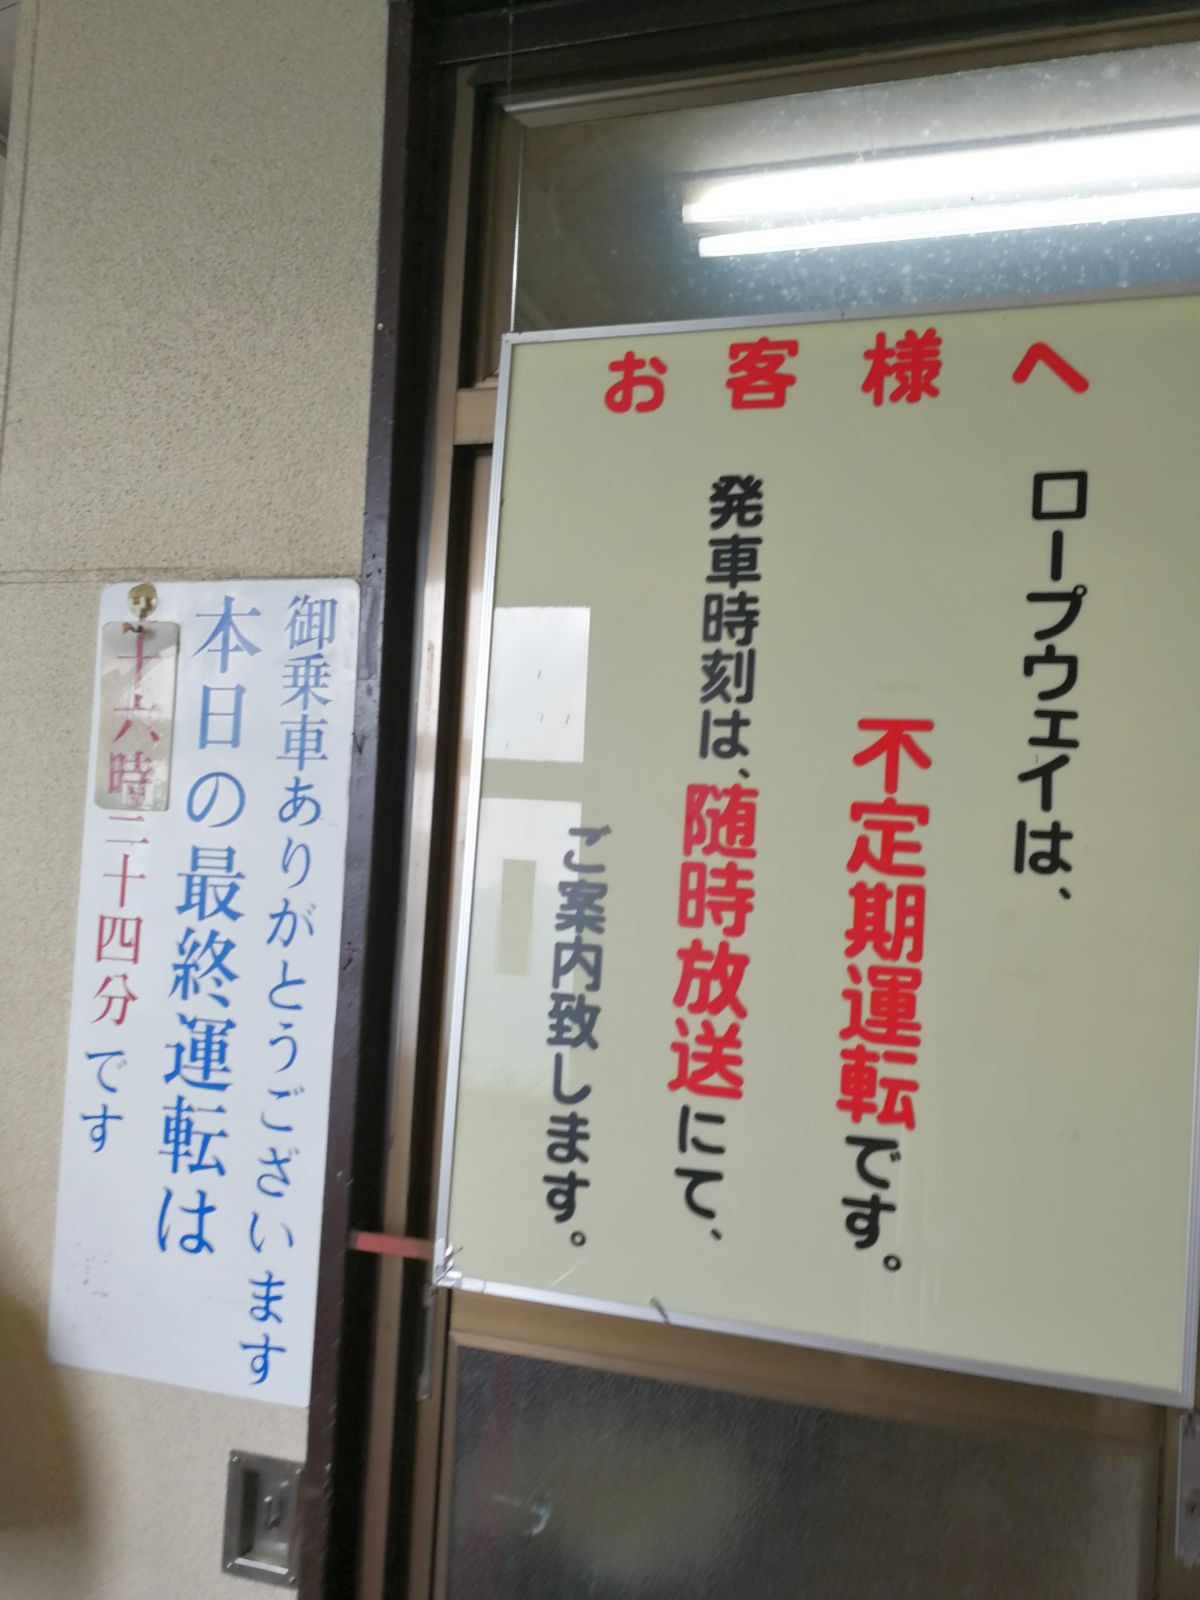 お客様へ
ロープウェイは、
不定期運転です。
発車時刻は、随時放送にて、
ご案内致します。
御乗車ありがとうございます
本日の最終運転は
十六時二十四分です